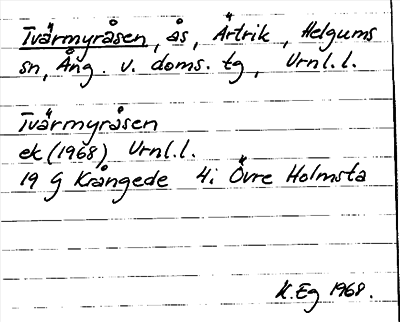 Tvärmyråsen, ås, Ärtrik, Helgums
sn, Ång. v. doms. tg, Vrnl.l.
Tvärmyråsen
ek (1968) Vrnl.l.
19 G Krångede 4i Övre Holmsta
K.Eg 1968.